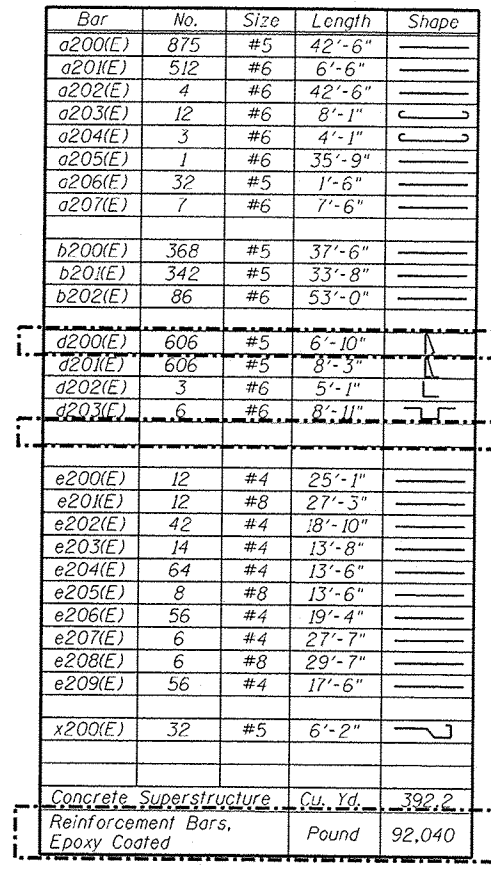 Bar No. Size Length Shape
a200(E) 875 #5 42'-6"
a201(E) 512 #6 6'-6"
a202(E) 4 #6 42'-6"
a203(E) 12 #6 8'-1"
a204(E) 3 #6 4'-1"
a205(E) 1 #6 35'-9"
a206(E) 32 #5 1'-6"
a207(E) 7 #6 7'-6"
b200(E) 368 #5 37'-6"
b201(E) 342 #5 33'-8"
b202(E) 86 #6 53'-0"
d200(E) 606 #5 6'-10"
d201(E) 606 #5 8'-3"
d202(E) 3 #6 5'-1"
d203(E) 6 #6 8'-11"
e200(E) 12 #4 25'-1"
e201(E) 12 #8 27'-3"
e202(E) 42 #4 18'-10"
e203(E) 14 #4 13'-8"
e204(E) 64 #4 13'-6"
e205(E) 8 #8 13'-6"
e206(E) 56 #4 19'-4"
e207(E) 6 #4 27'-7"
e208(E) 6 #8 29'-7"
e209(E) 56 #4 17'-6"
x200(E) 32 #5 6'-2"
Concrete Superstructure Cu. Yd. 392.2
Reinforcement Bars,
Epoxy Coated Pound 92,040